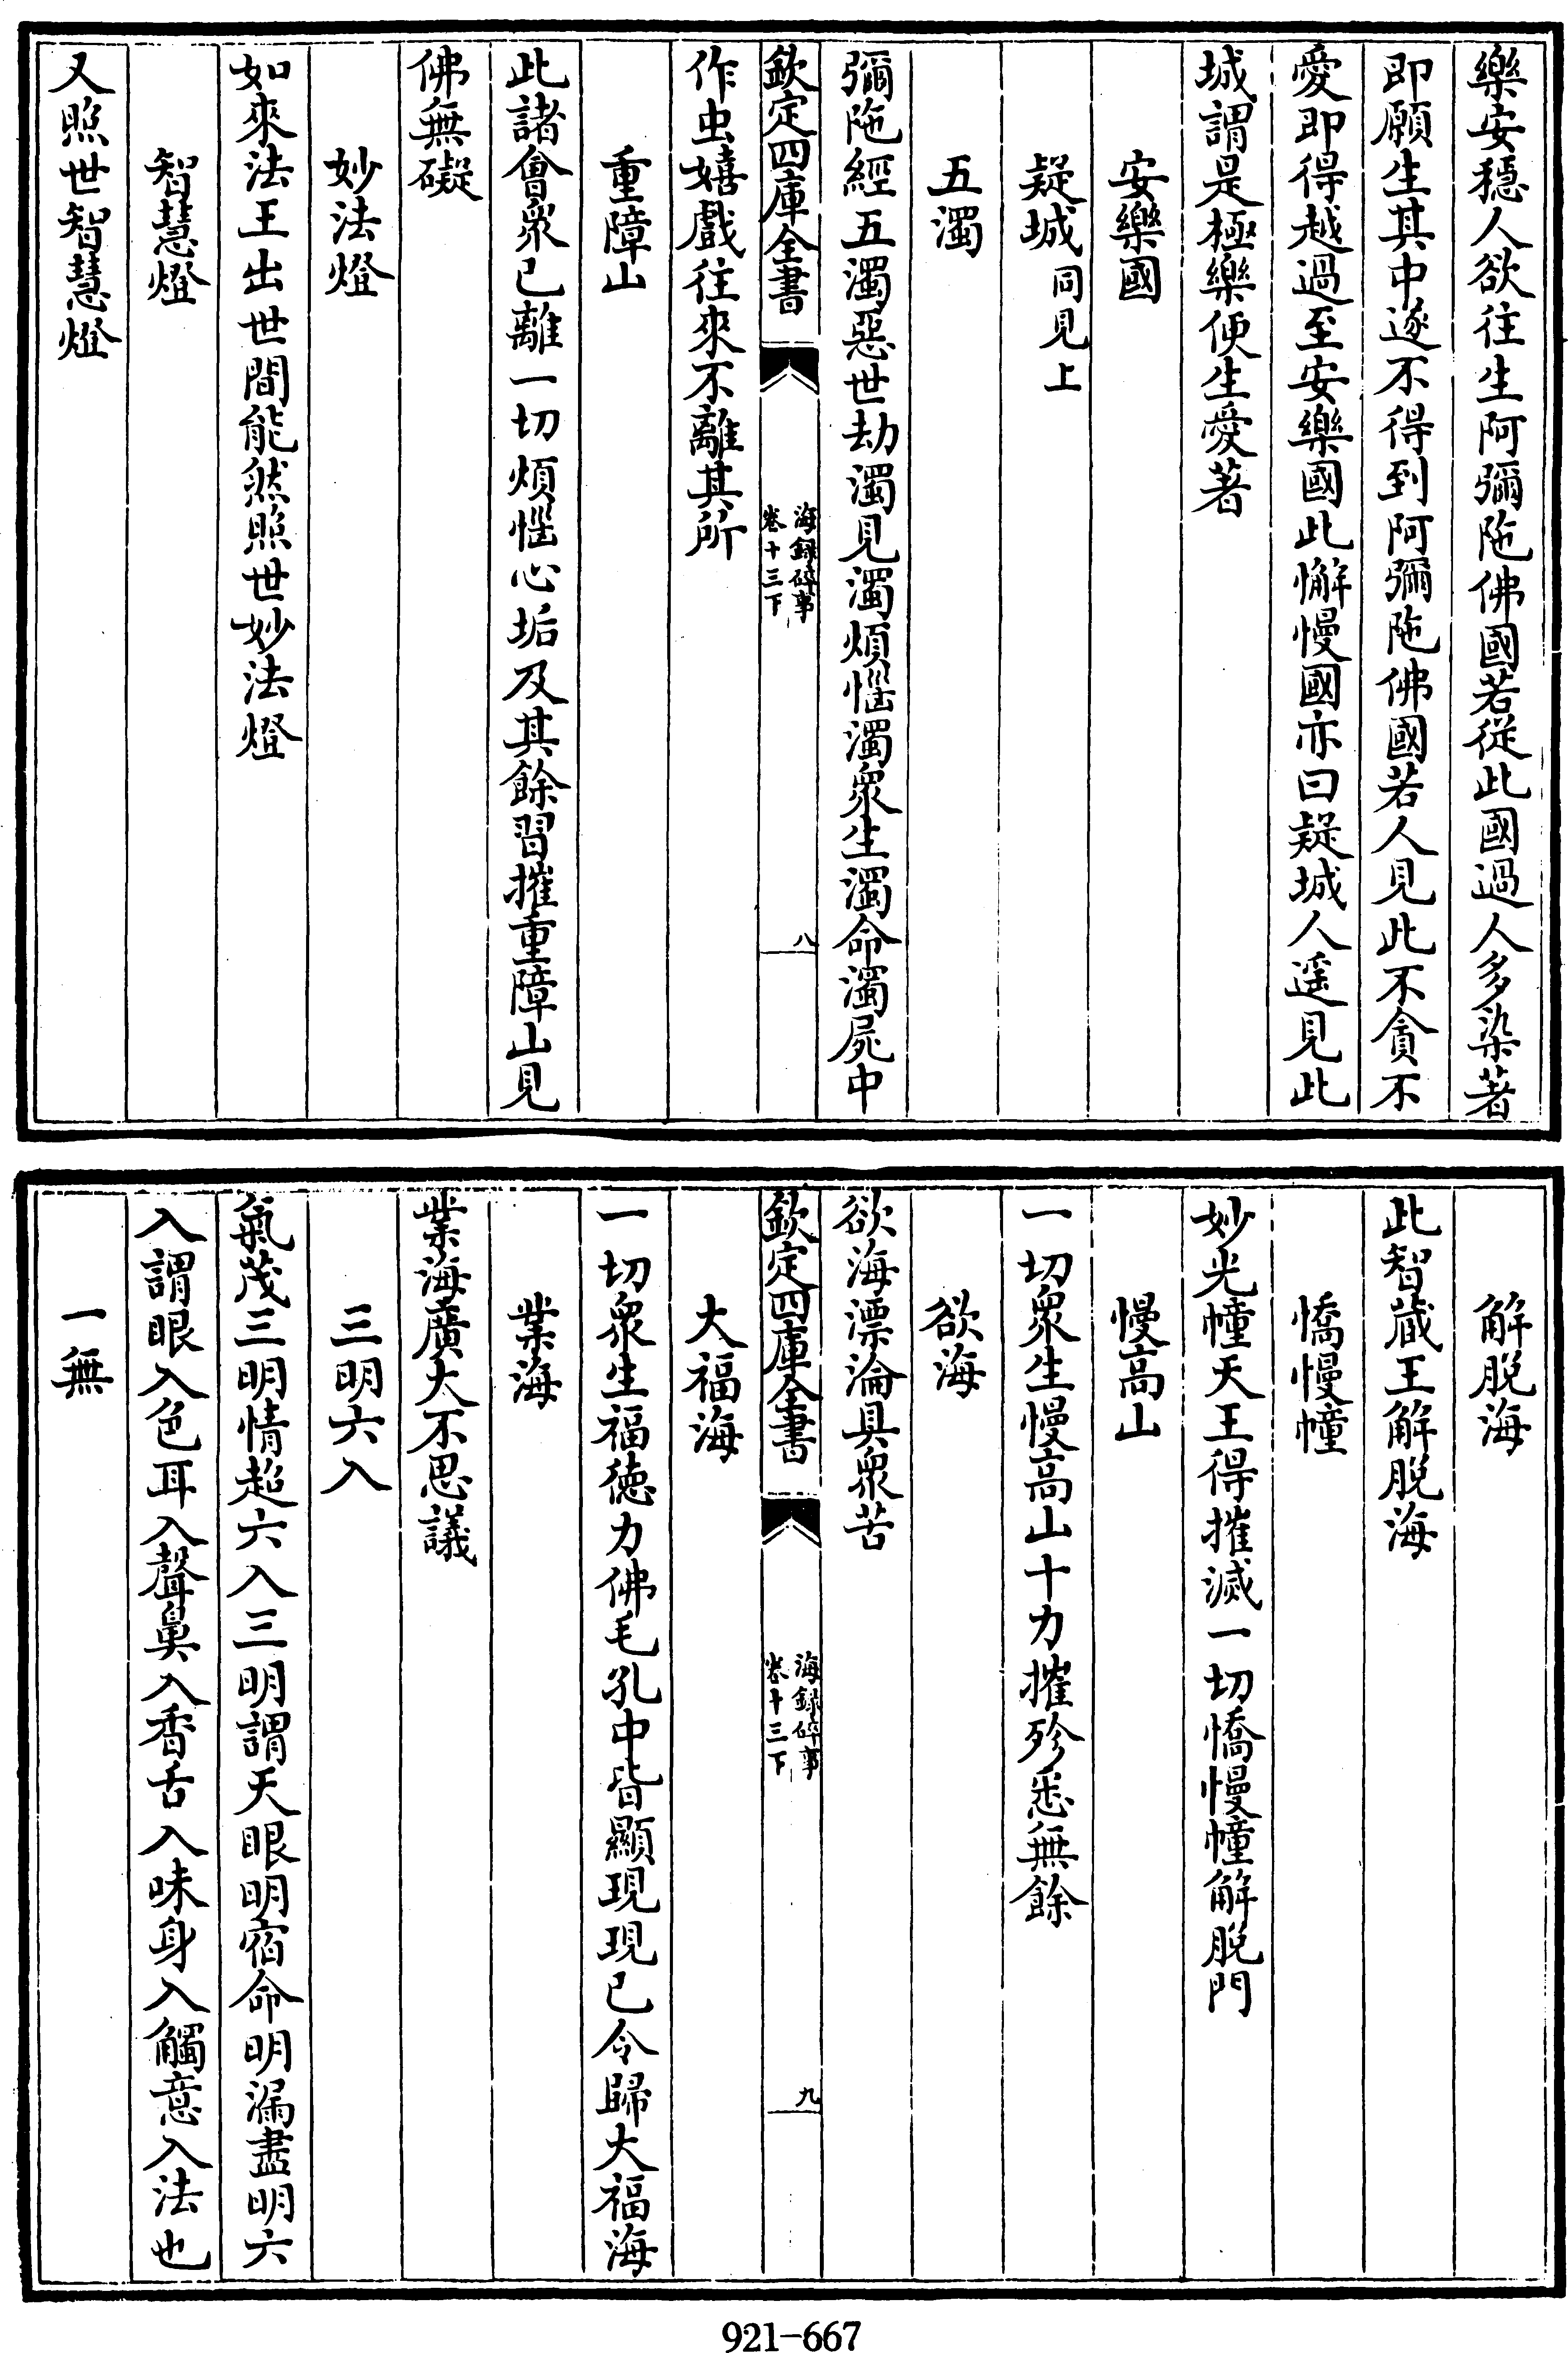 樂安穩人欲往生阿彌陁佛國若從此國過人多染著
即願生其中遂不得到阿彌陁佛國若人見此不貪不
愛即得越過至安樂國此懈慢國亦曰疑城人遥見此
城謂是極樂便生愛著
安樂國
疑城同見上
五濁
彌陁經五濁惡世劫濁見濁煩惱濁衆生濁命濁屍中
欽定四庫全書
海録碎事
卷十三下
八
作虫嬉戲往來不離其所
重障山
此諸會衆已離一切煩惱心垢及其餘習摧重障山見
佛無礙
妙法燈
如來法王出世間能然照世妙法燈
智慧燈
又照世智慧燈
解脱海
此智蔵王解脱海
憍慢幢
妙光幢天王得摧滅一切憍慢幢解脱門
慢高山
一切衆生慢高山十力摧殄悉無餘
欲海
欲海漂淪具衆苦
欽定四庫全書
海録碎事
卷十三下
九
大福海
一切衆生福徳力佛毛孔中皆顯現現已令歸大福海
業海
業海廣大不思議
三明六入
氣茂三明情超六入三明謂天眼明宿命明漏盡明六
入謂眼入色耳入聲鼻入香舌入味身入觸意入法也
一無
921-667